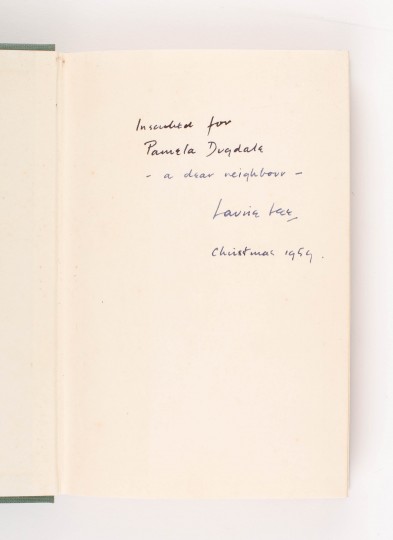 Inscribed for
Pamela Dugdale
- a dear neighbour -
Laurie Lee
Christmas 1959.